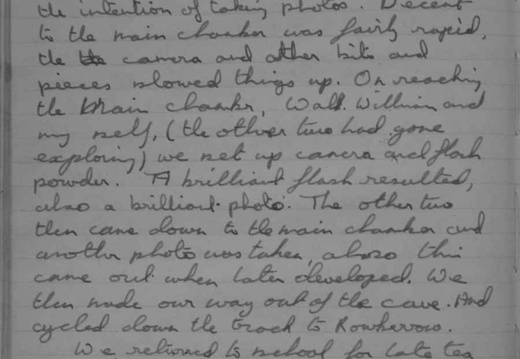 the intention of taking photos. Decent
to the main chamber was fairly rapid,
the the camera and other bits and
pieces slowed things up. On reaching
the Main chamber, Walt. William and
my self, (the other two had gone
exploring) we set up camera and flash
powder. A brilliant flash resulted,
also a brilliant photo. The other two
then came down to the main chamber and
another photo was taken, also this
came out when later developed. We
then made our way out of the cave. And
cycled down the track to Rowberrow.
We returned to school for late tea